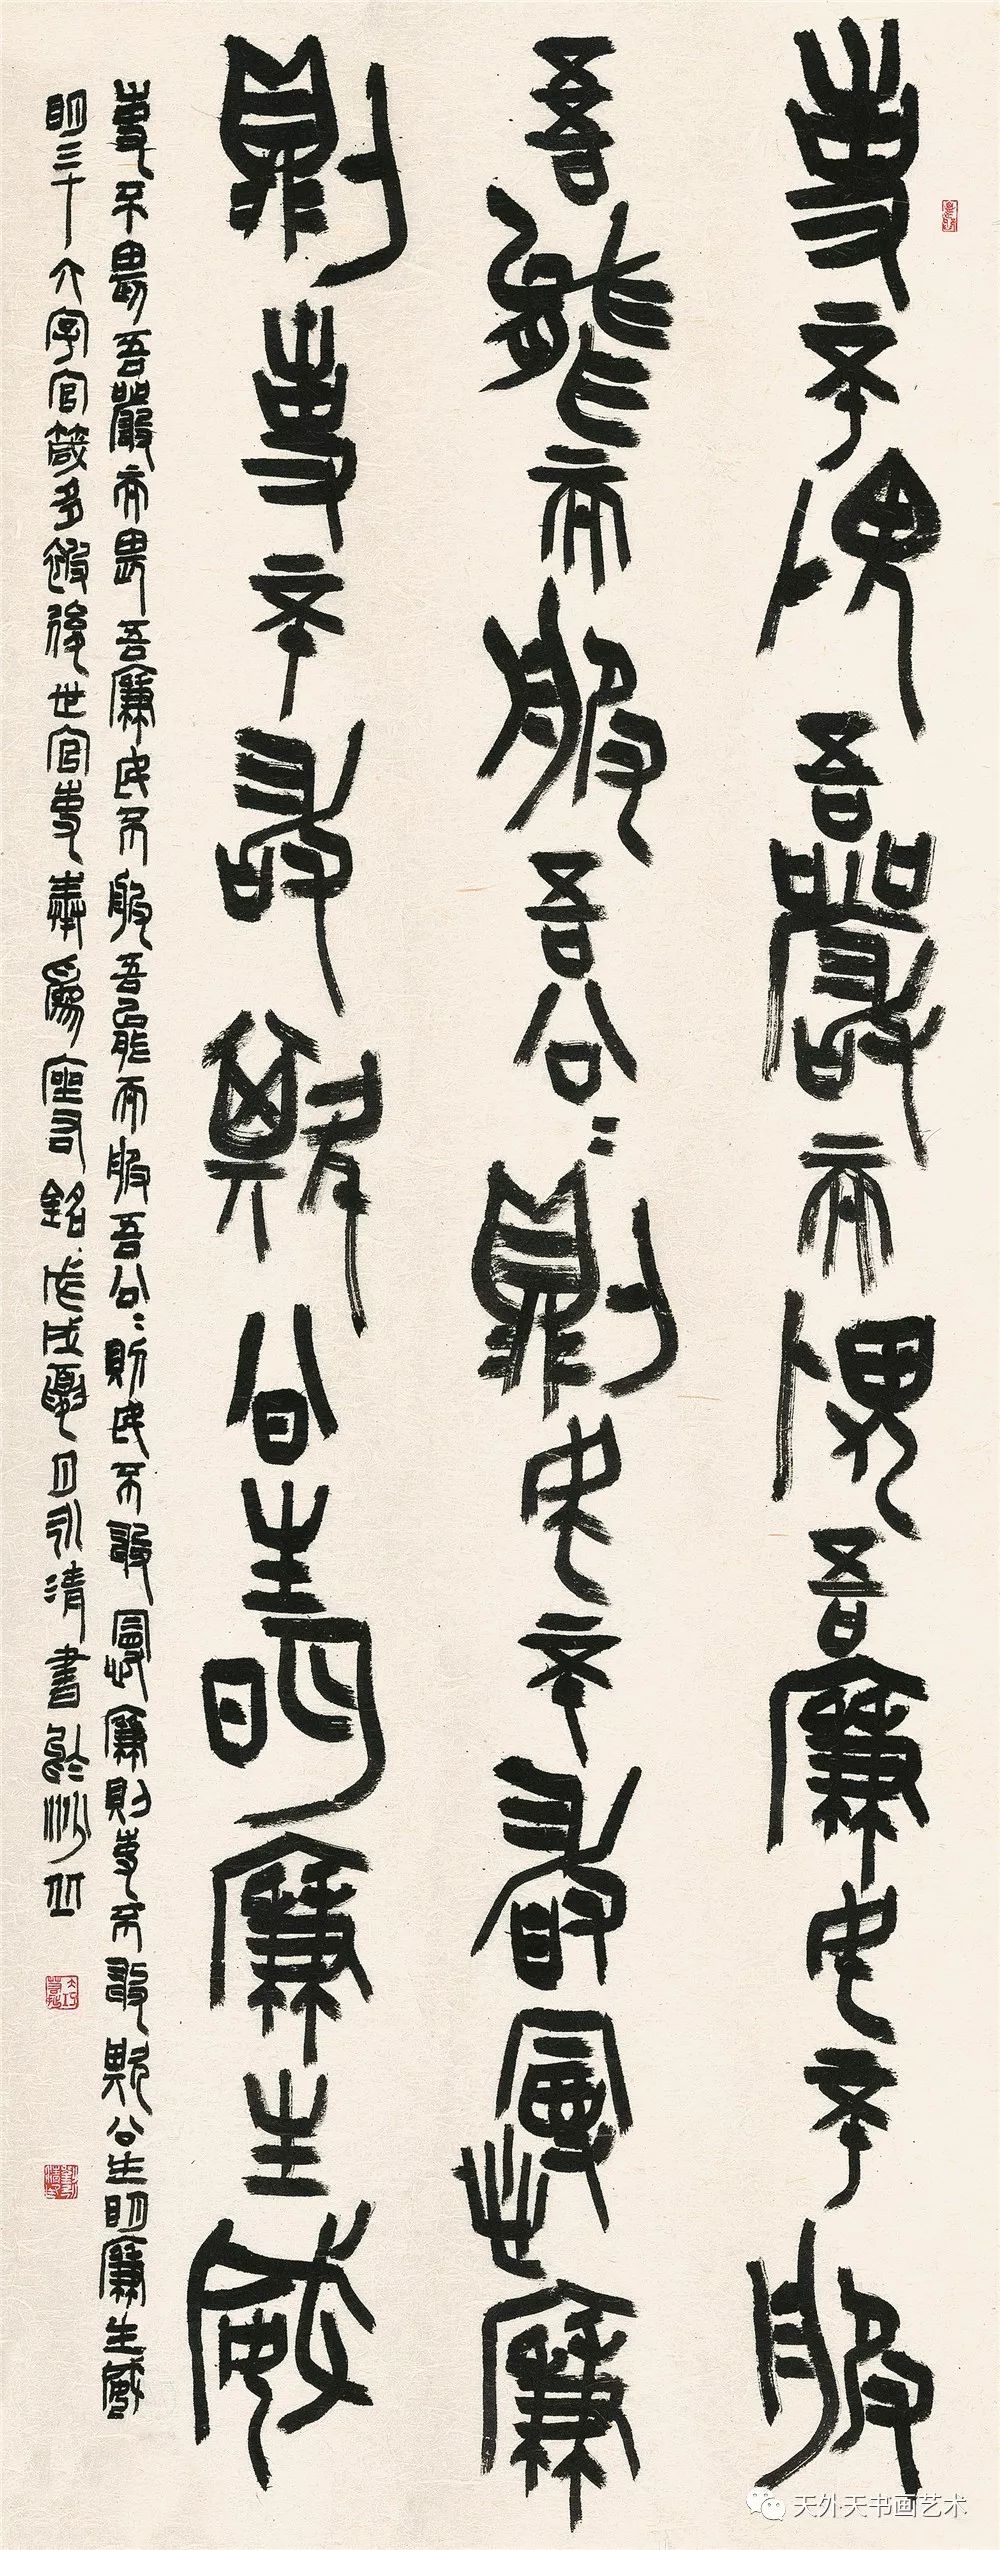 吏不畏吾嚴而畏吾廉民不服
吾能而服吾公〻則民不敢慢廉
則吏不敢欺公生明廉生威
吏不畏吾嚴而畏吾廉民不服吾能而服吾公〻則民不敢慢廉則吏不敢欺公生明廉生威
明三十六字官箴多被後世官吏奉爲座右銘戊戌夏日永清書於沙丘
天外天书画艺术